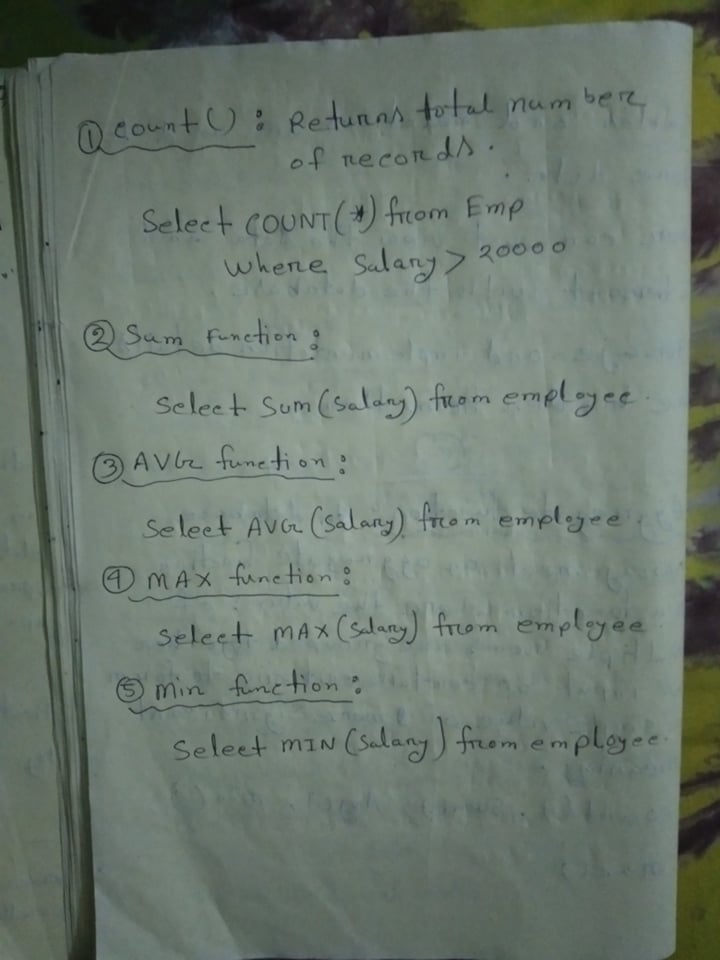 ① Count() : Returns total number
of records.
Select COUNT(*) from Emp
where Salary > 20000
② Sum Function :
Select Sum(Salary) from employee.
③ AVG function :
Select AVG(Salary) from employee.
④ MAX function :
Select MAX(Salary) from employee
⑤ Min function :
Select MIN(Salary) from employee.